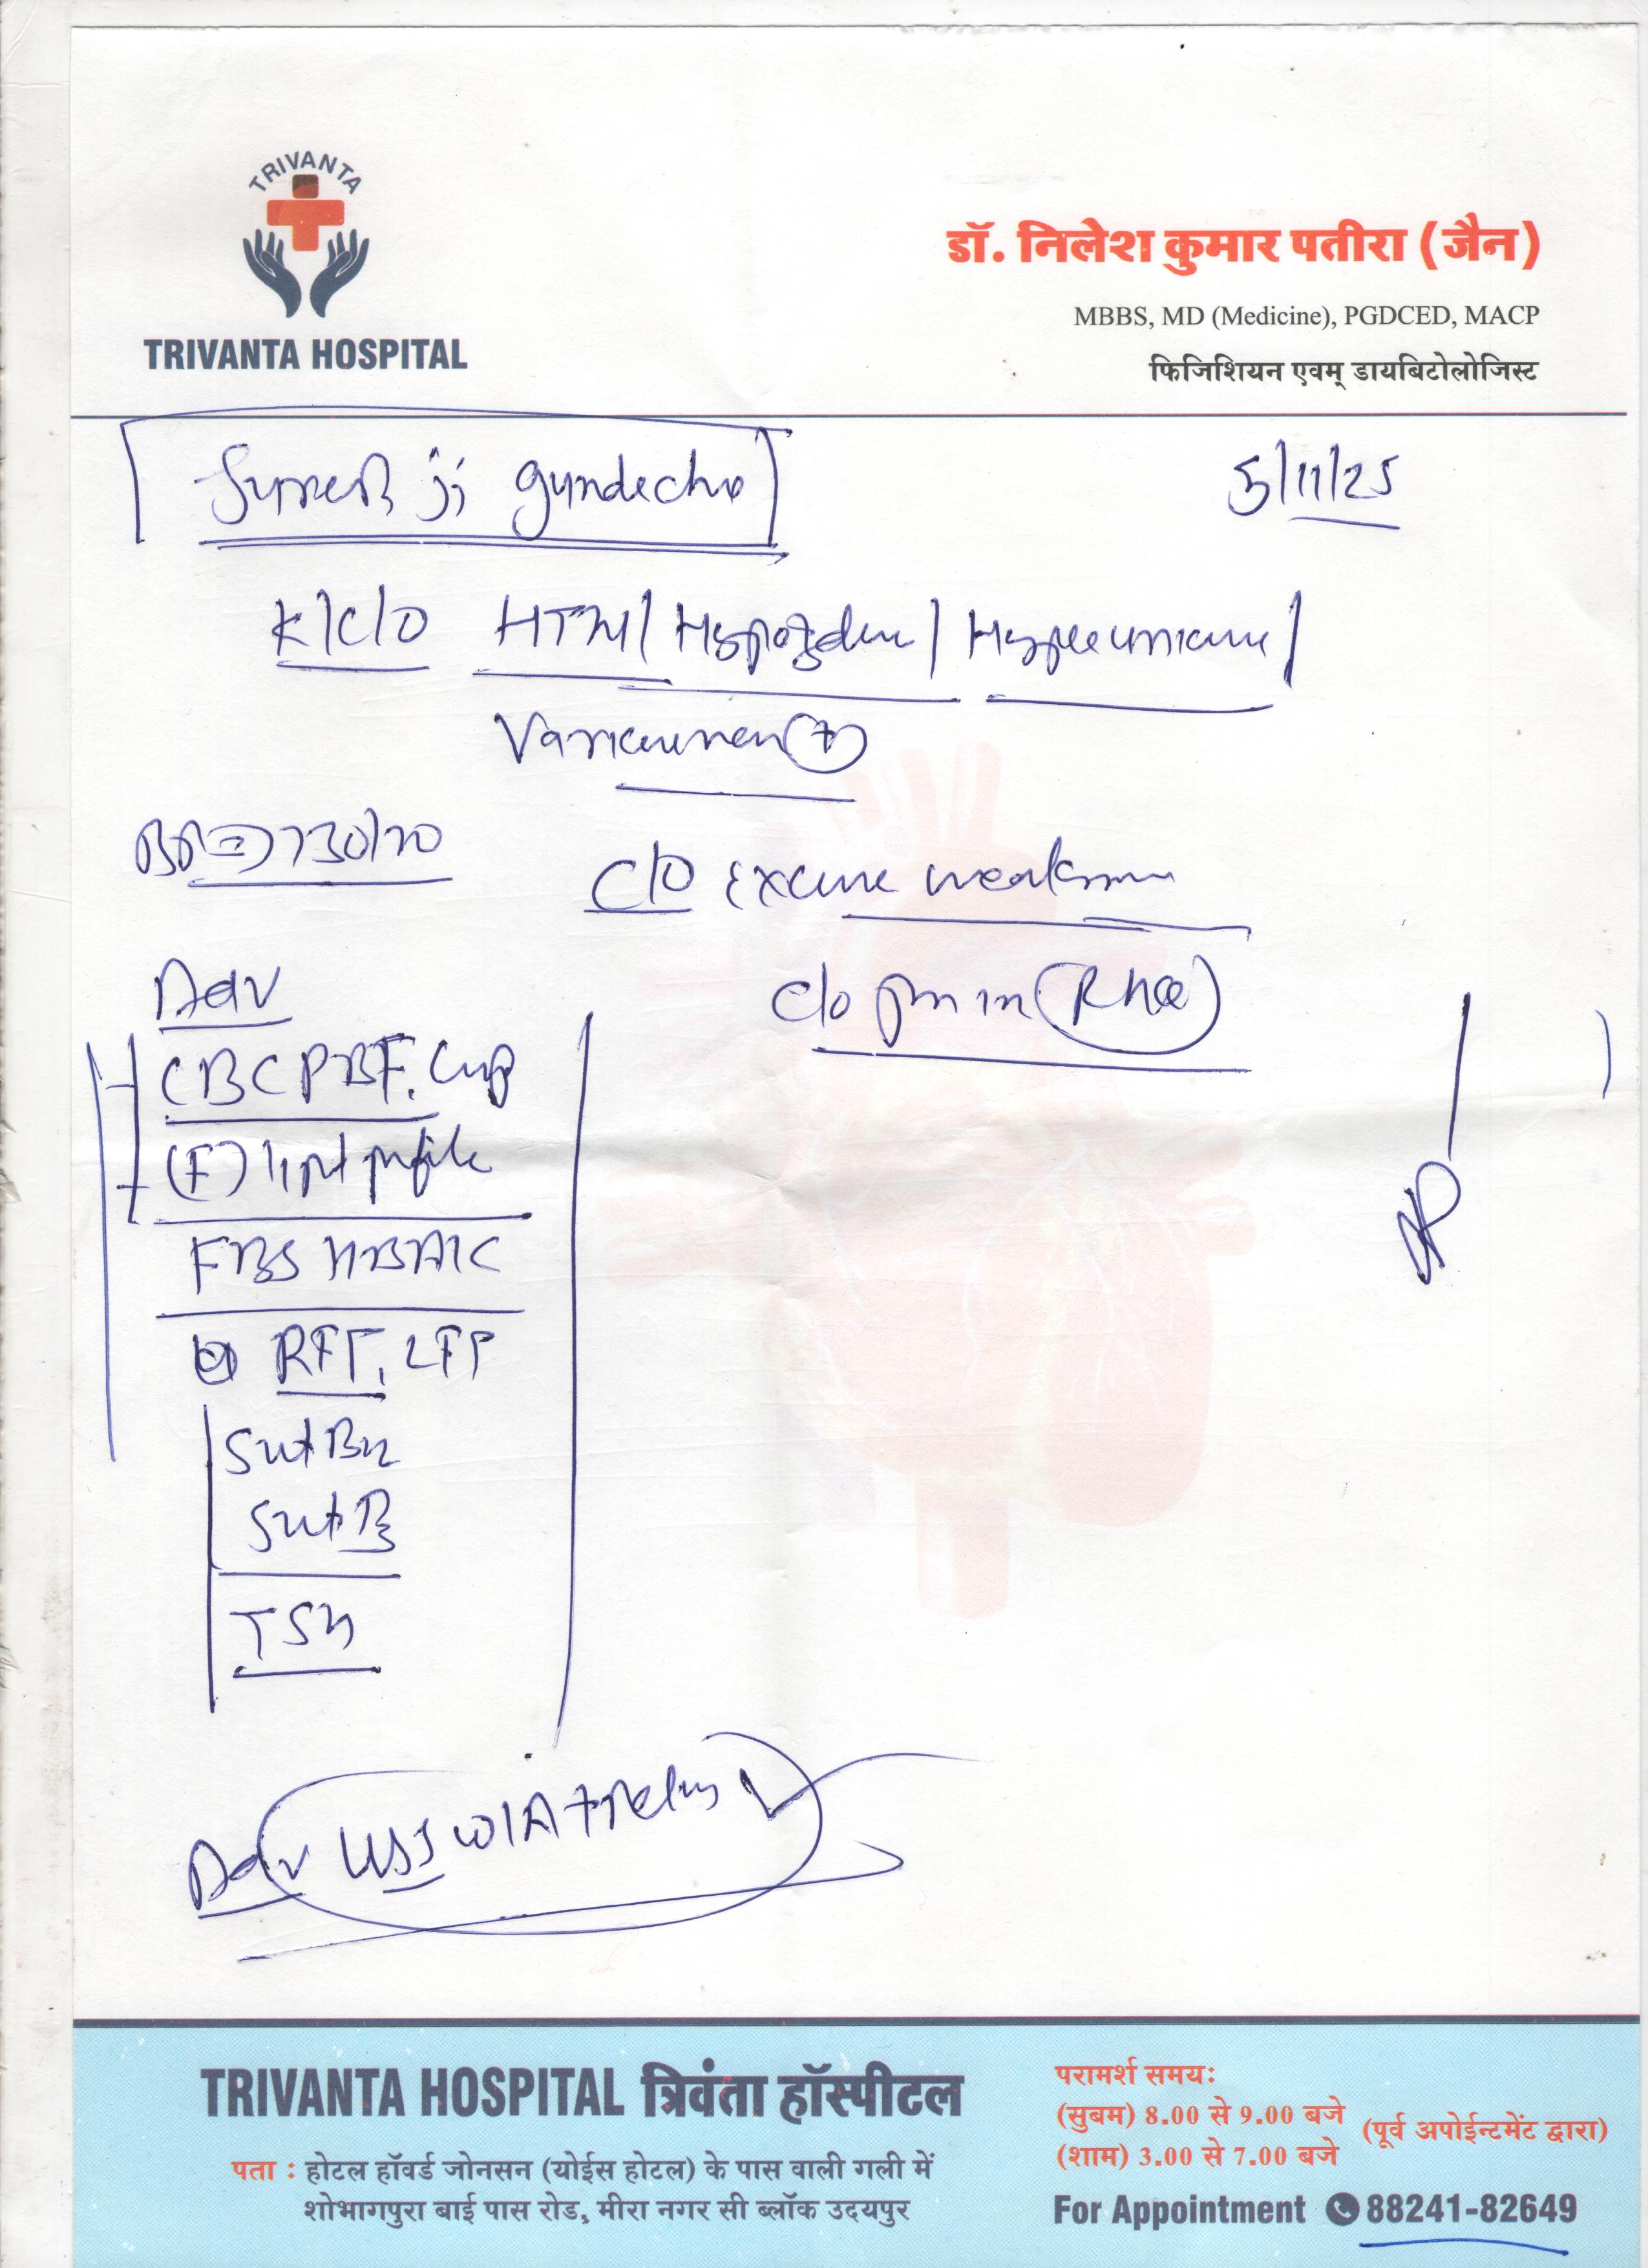 TRIVANTA
TRIVANTA HOSPITAL
डॉ. निलेश कुमार पतीरा (जैन)
MBBS, MD (Medicine), PGDCED, MACP
फिजिशियन एवम् डायबिटोलोजिस्ट
Suresh ji gundecha
5/11/25
K/C/O HTN /
BP 130/70
C/O weakness
Adv
C/o pain in
CBC PBF.
(F) lipid profile
FBS HBA1C
RFT, LFT
B12
D3
TSH
Adv
TRIVANTA HOSPITAL त्रिवंता हॉस्पीटल
पता : होटल हॉवर्ड जोनसन (योईस होटल) के पास वाली गली में
शोभागपुरा बाई पास रोड, मीरा नगर सी ब्लॉक उदयपुर
परामर्श समय:
(सुबम) 8.00 से 9.00 बजे
(शाम) 3.00 से 7.00 बजे
(पूर्व अपोईन्टमेंट द्वारा)
For Appointment 88241-82649